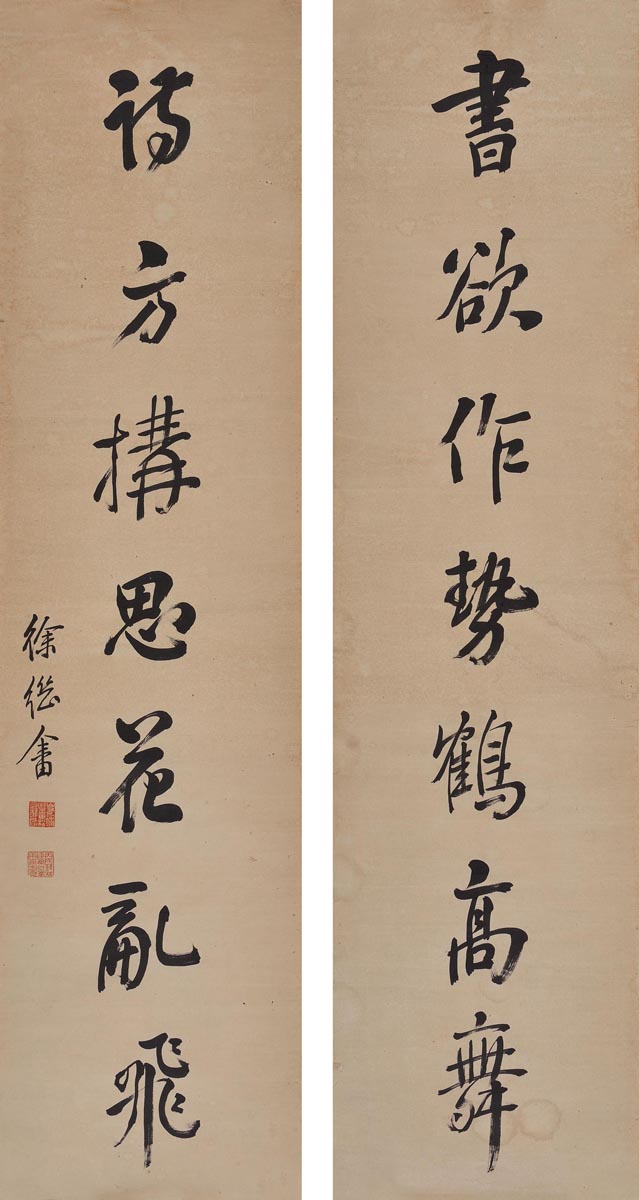 書欲作勢鶴高舞
詩方搆思花亂飛
徐继畬